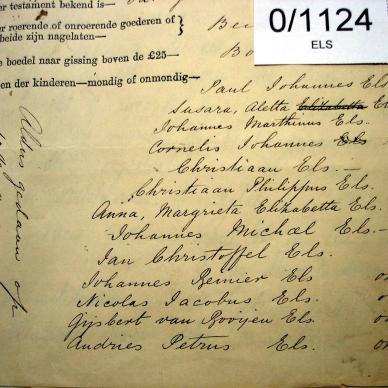 0/1124
ELS
r testament bekend is—
er roerende of onroerende goederen of }
beide zijn nagelaten—
e boedel naar gissing boven de £25—
en der kinderen—mondig of onmondig—
Paul Johannes Els
Susara, Aletta Elizabetta Els
Johannes Marthinus Els.
Cornelis Johannes Els
Christiaan Els.—
Christiaan Philippus Els.
Anna, Margrieta Elizabetta Els.
Johannes Michael Els.—
Jan Christoffel Els.
Johannes Renier Els
Nicolas Jacobus Els.
Gijsbert van Rooijen Els.
Andries Petrus Els.
Aldus gedaan op